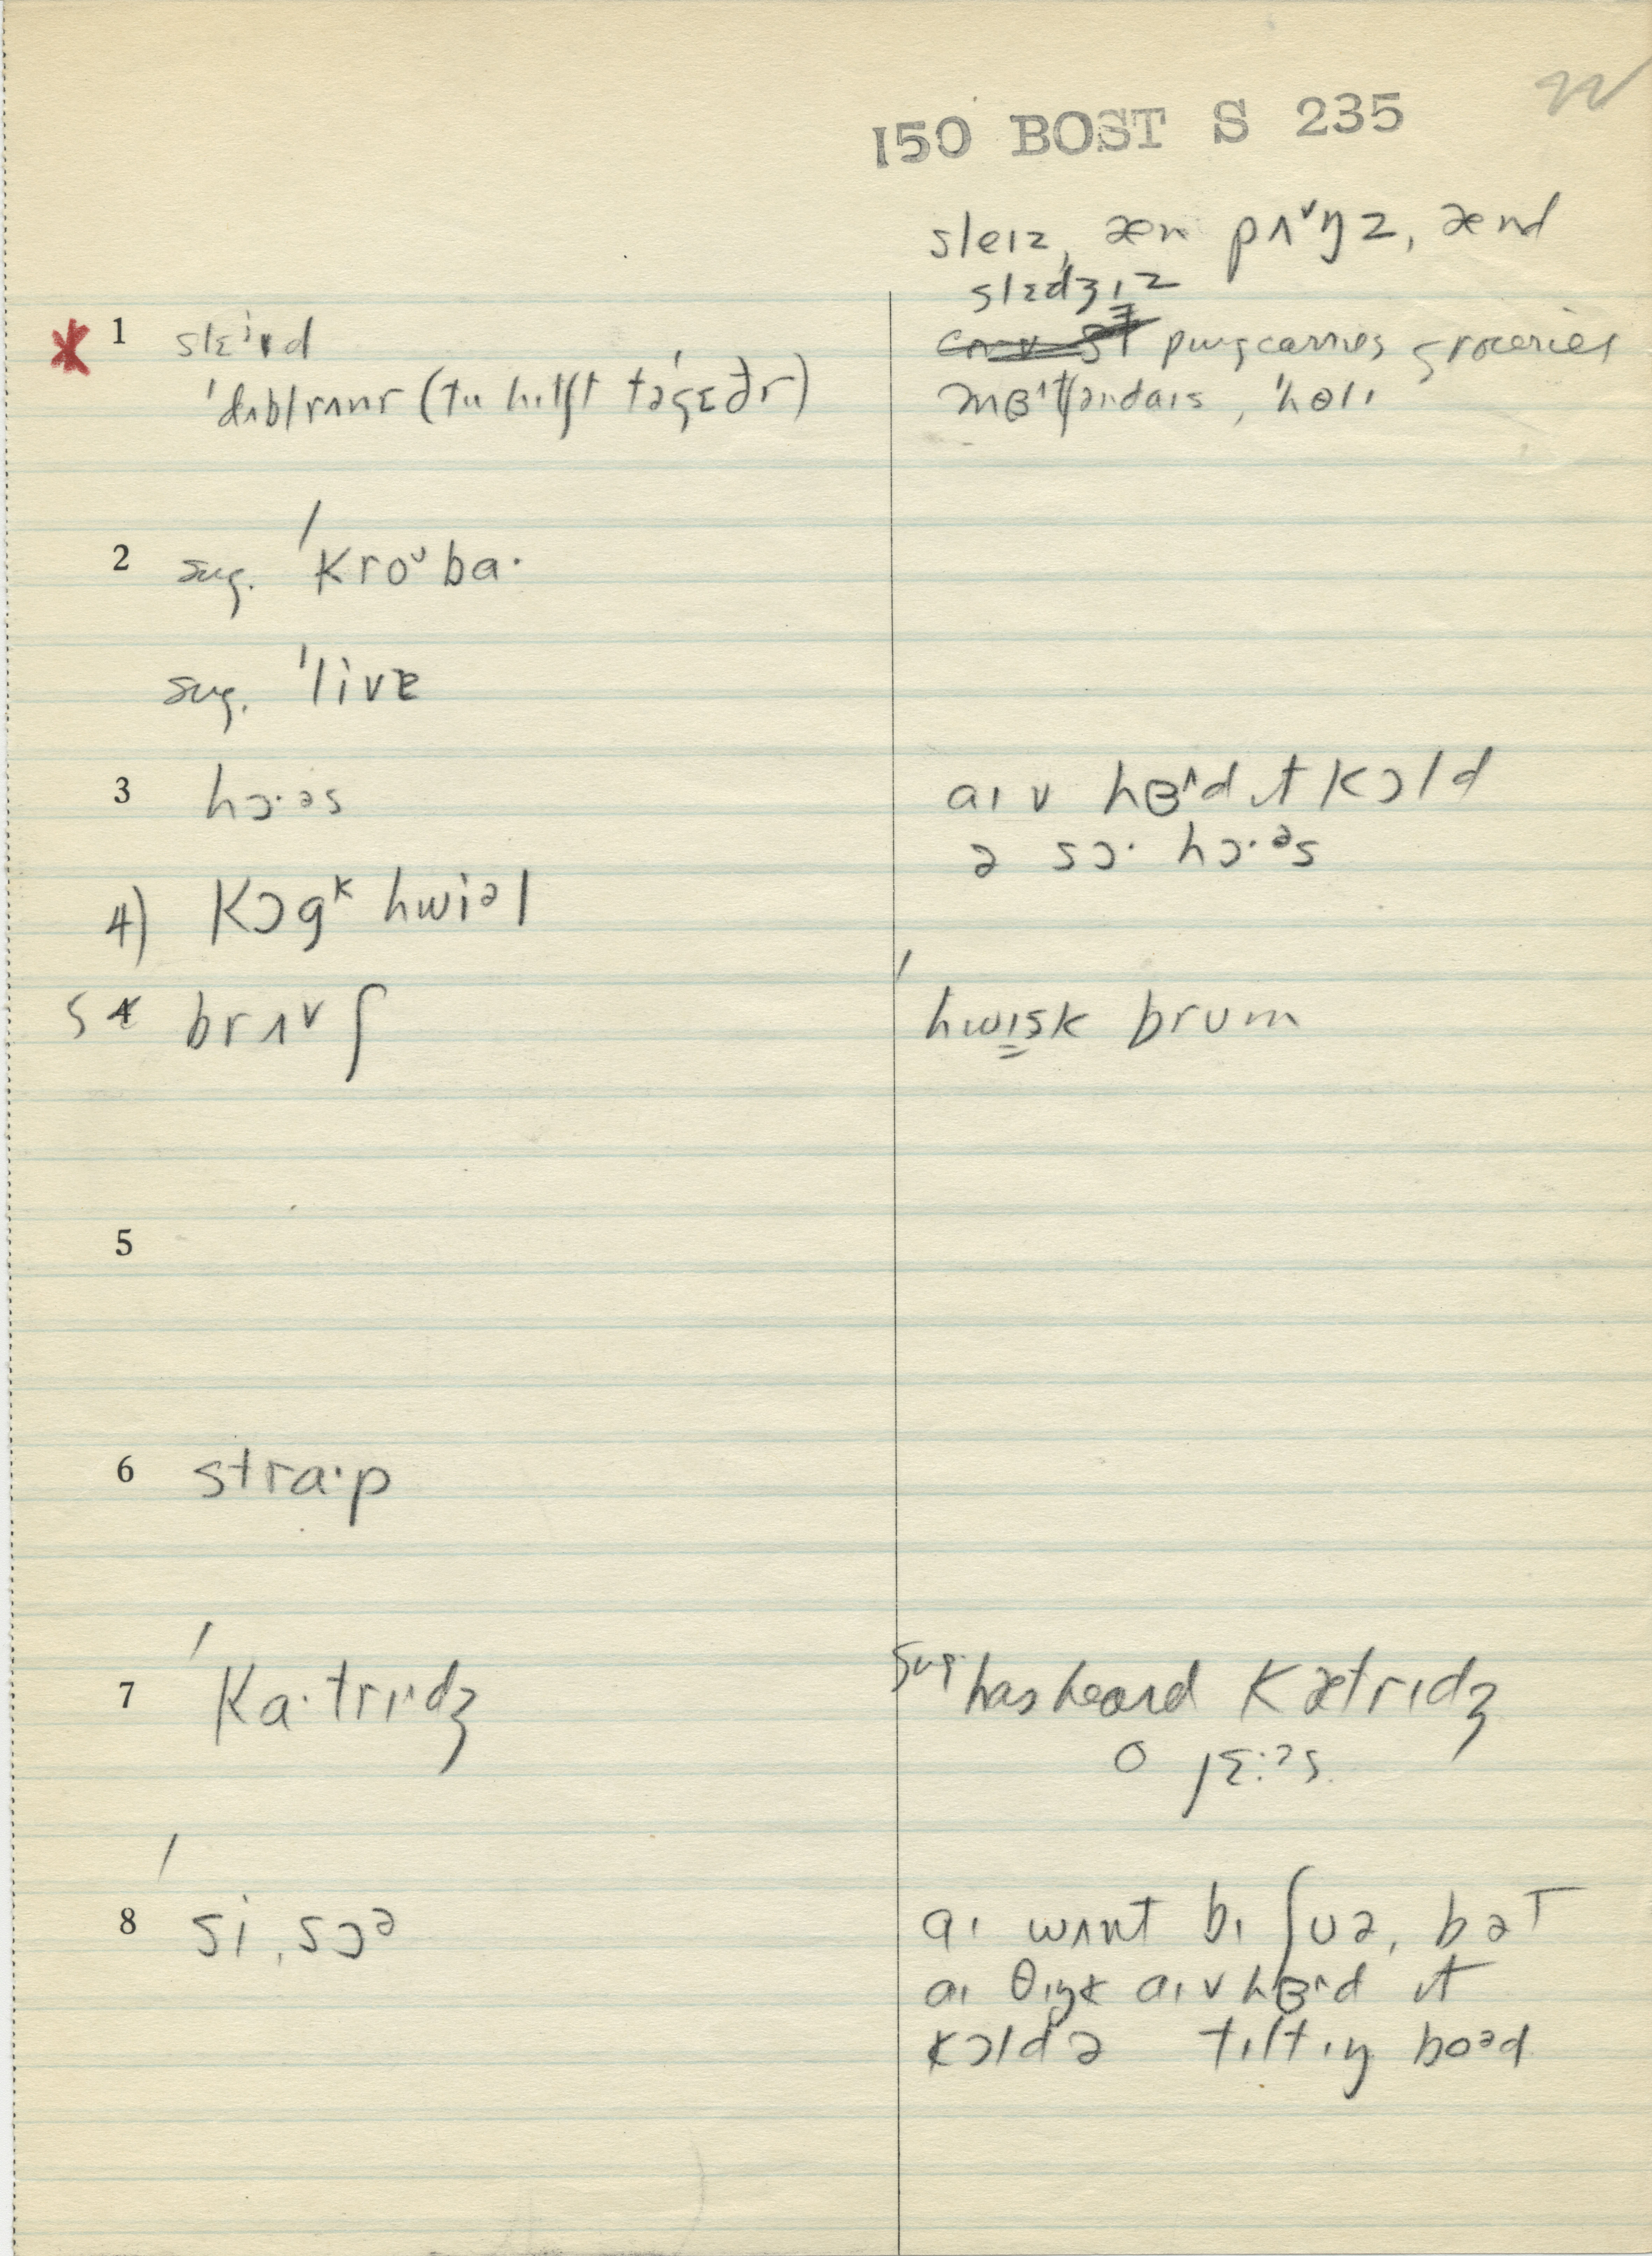 22
150 BOST S 235
sleɪz, æn pʌᵛŋz, ænd
slɛdʒɪz
* 1
pung carries groceries
ˈdʌblrʌnr (tu hɪtʃt təgɛðr)
2 sug. ˈkroᵘba·
sug. ˈlivɐ
3 hɔ·əs
aɪ v hɞ^d ɪt kɔld
ə sɔ· hɔ·ᵊs
4) kɔgᵏ hwiᵊl
5 4 brʌᵛʃ
ˈhwɪsk brum
5
6 stra·p
7 ˈka·trɪdʒ
sug. has heard kætrɪdʒ
8 ˈsiˌsɔᵊ
aɪ wʌnt bɪ ʃuə, bət
aɪ θɪŋk aɪ v hɞ^d ɪt
kɔld ə tɪltɪŋ boᵊd